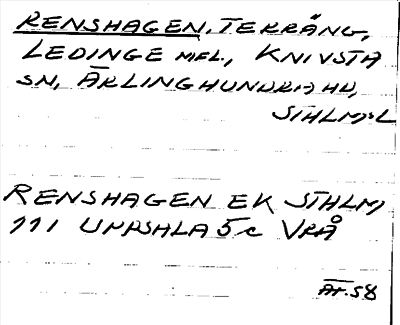 RENSHAGEN, TERRÄNG,
LEDINGE M.FL., KNIVSTA
SN, ÄRLINGHUNDRA HD,
STHLMS L
RENSHAGEN EK STHLM
111 UPPSHLA 5c VRÅ
ÄT.58